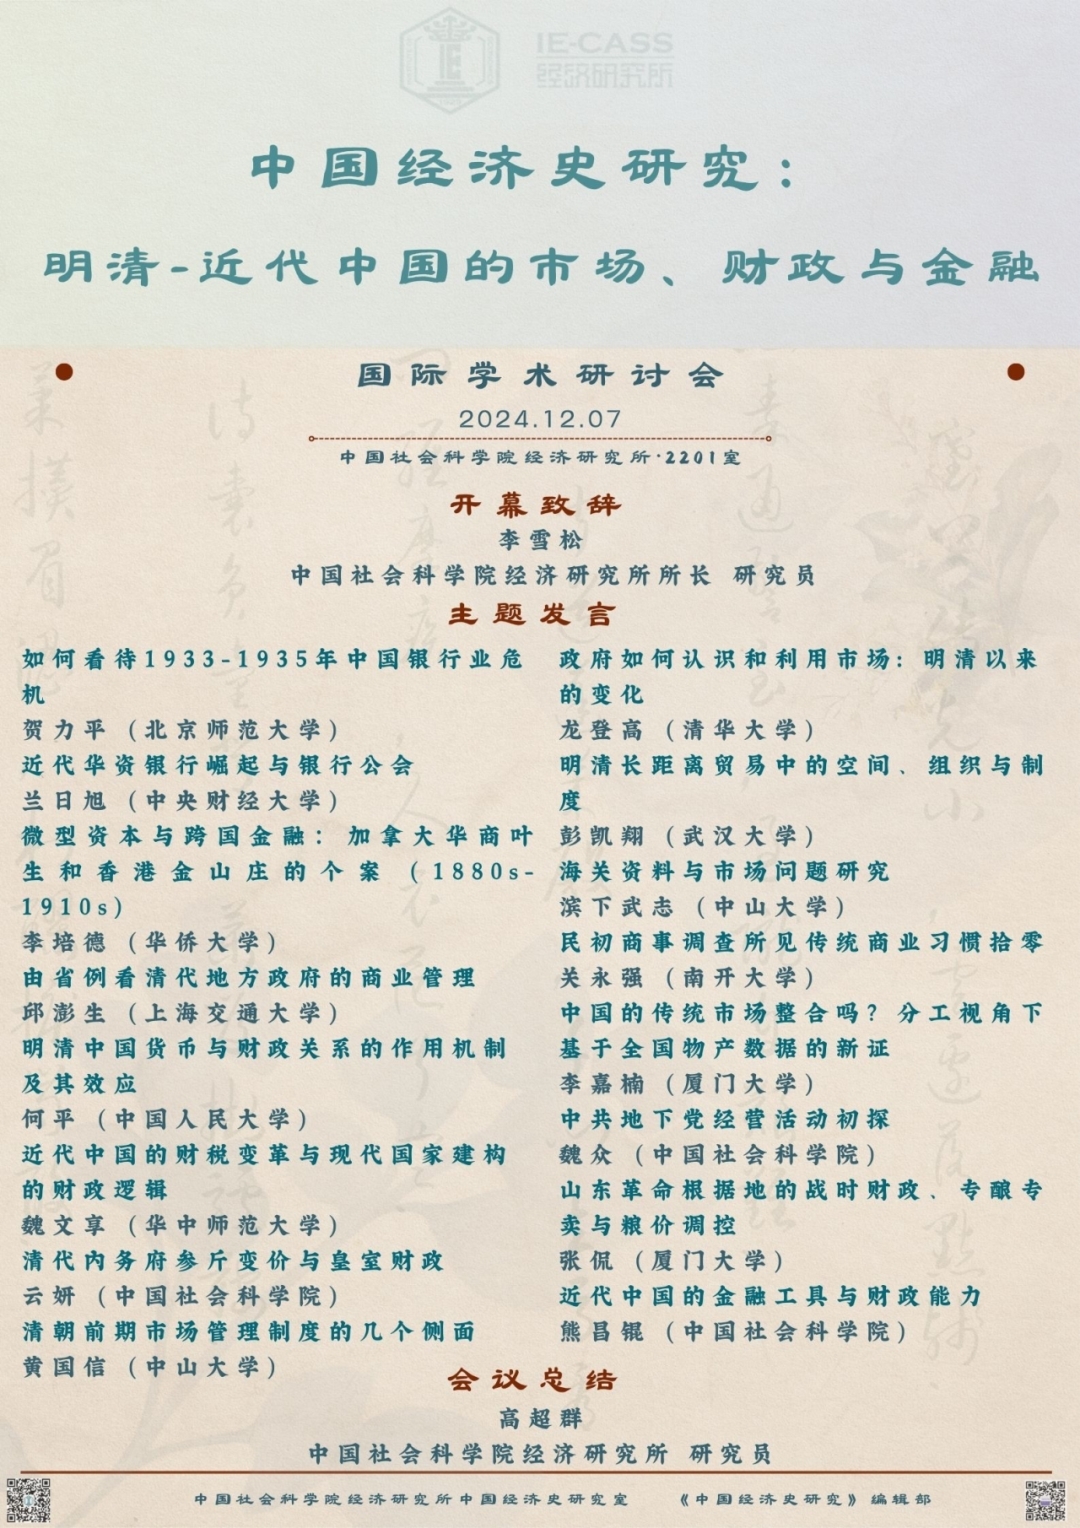 IE-CASS
经济研究所
中国经济史研究：
明清-近代中国的市场、财政与金融
国际学术研讨会
2024.12.07
中国社会科学院经济研究所·2201室
开幕致辞
李雪松
中国社会科学院经济研究所所长 研究员
主题发言
如何看待1933-1935年中国银行业危
机
贺力平（北京师范大学）
近代华资银行崛起与银行公会
兰日旭（中央财经大学）
微型资本与跨国金融：加拿大华商叶
生和香港金山庄的个案（1880s-
1910s)
李培德（华侨大学）
由省例看清代地方政府的商业管理
邱澎生（上海交通大学）
明清中国货币与财政关系的作用机制
及其效应
何平（中国人民大学）
近代中国的财税变革与现代国家建构
的财政逻辑
魏文享（华中师范大学）
清代内务府参斤变价与皇室财政
云妍（中国社会科学院）
清朝前期市场管理制度的几个侧面
黄国信（中山大学）
政府如何认识和利用市场：明清以来
的变化
龙登高（清华大学）
明清长距离贸易中的空间、组织与制
度
彭凯翔（武汉大学）
海关资料与市场问题研究
滨下武志（中山大学）
民初商事调查所见传统商业习惯拾零
关永强（南开大学）
中国的传统市场整合吗？分工视角下
基于全国物产数据的新证
李嘉楠（厦门大学）
中共地下党经营活动初探
魏众（中国社会科学院）
山东革命根据地的战时财政、专酿专
卖与粮价调控
张侃（厦门大学）
近代中国的金融工具与财政能力
熊昌锟（中国社会科学院）
会议总结
高超群
中国社会科学院经济研究所 研究员
中国社会科学院经济研究所中国经济史研究室 《中国经济史研究》编辑部